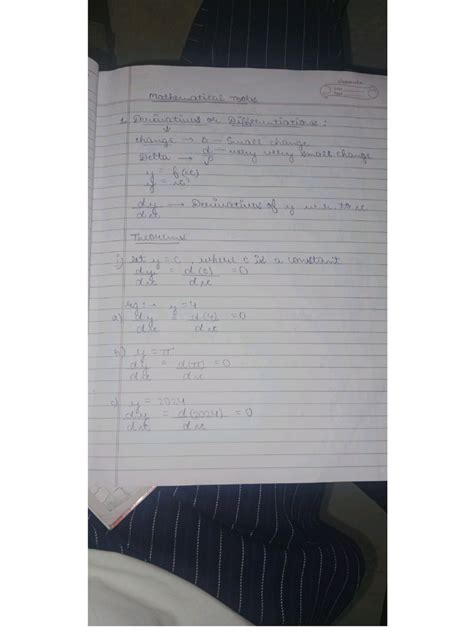 Mathematical Tools
1. Derivatives or Differentiations :
change → Δ — Small change
Delta → d — very very small change
y = f(x)
y = x²
dy/dx → Derivatives of y w.r. to x
Theorems
i) Let y = c , where c is a constant
dy/dx = d(c)/dx = 0
Eg: → y = 4
a) dy/dx = d(4)/dx = 0
b) y = π
dy/dx = d(π)/dx = 0
c) y = 2024
dy/dx = d(2024)/dx = 0